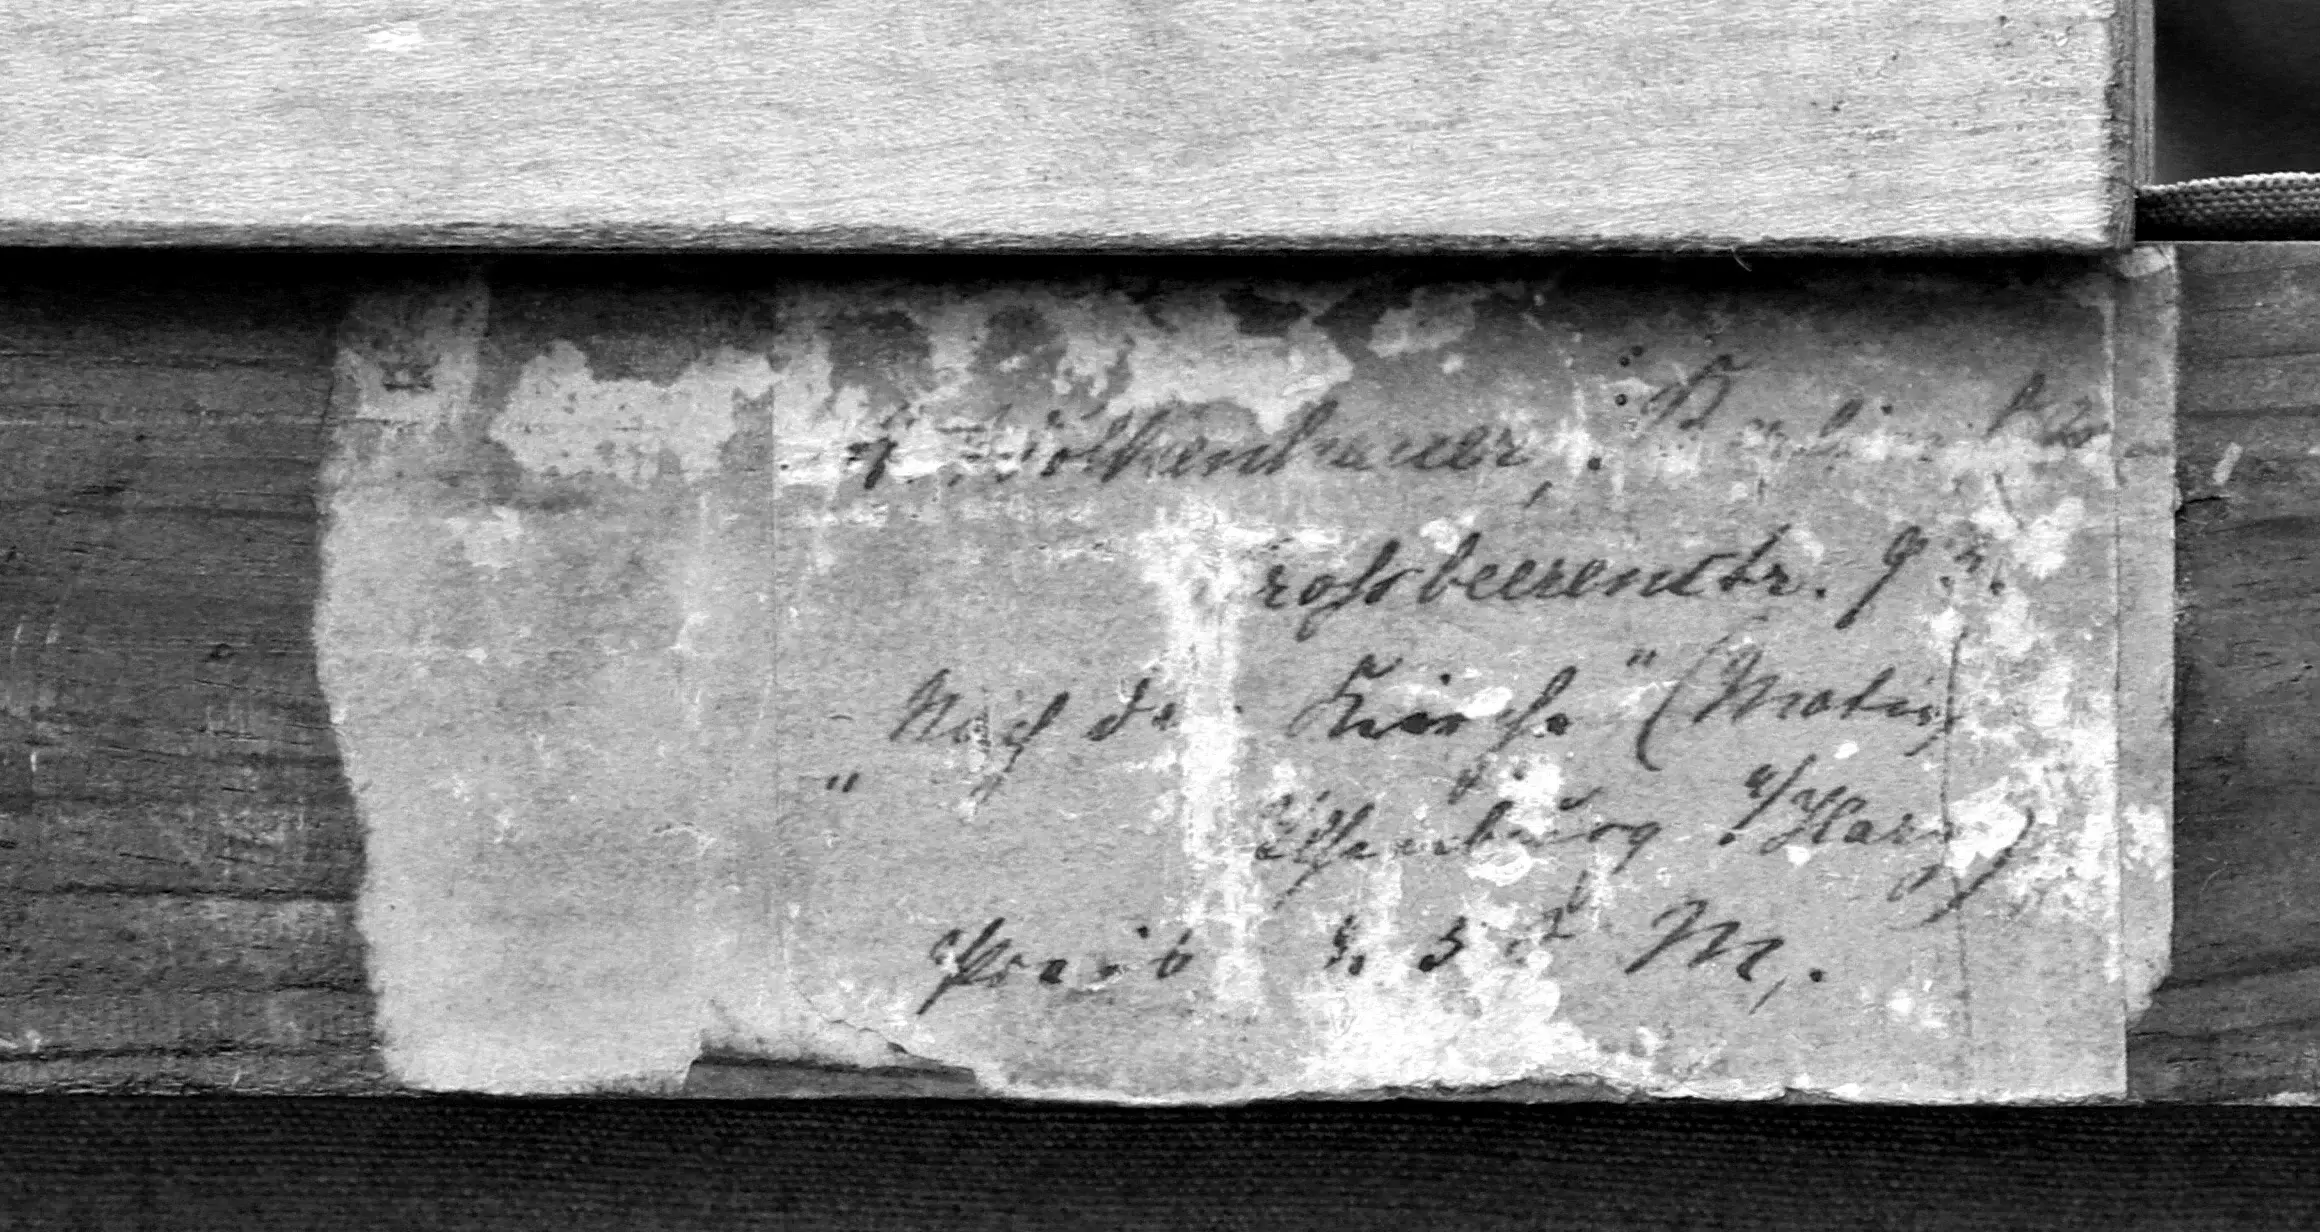 Wolkenhauer, Berlin
rossbeerenstr. 92.
"Nach der Kirche" (Motiv
Ilsenburg a/Harz)
Preis M.